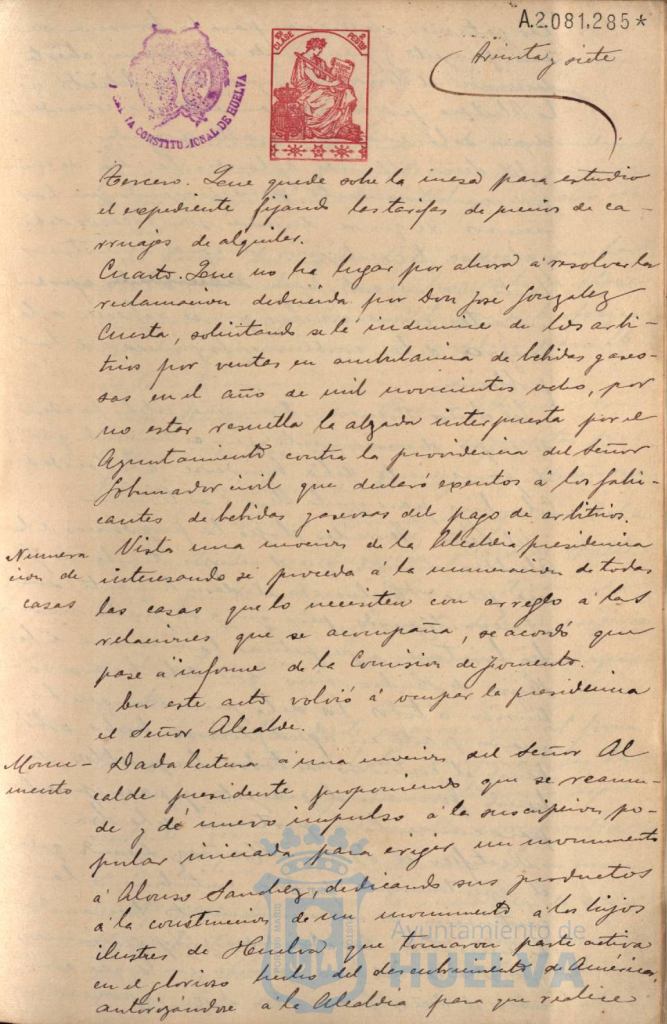 A.2.081.285*
Treinta y siete
CLASE
PESETAS
CONSTITUCIONAL DE HUELVA
Tercero. Que quede sobre la mesa para estudio
el expediente fijando las tarifas de precios de ca-
rruajes de alquiler.
Cuarto. Que no ha lugar por ahora á resolver la
reclamacion deducida por Don José Gonzalez
Cuesta, solicitando se le indemnice de los arbi-
trios por ventas en ambulancia de bebidas gaseo-
sas en el año de mil novecientos ocho, por
no estar resuelta la alzada interpuesta por el
Ayuntamiento contra la providencia del Señor
Gobernador civil que declaró exentos á los fabri-
cantes de bebidas gaseosas del pago de arbitrios.
Numera
cion de
casas
Vista una mocion de la Alcaldia presidencia
interesando se proceda á la numeracion de todas
las casas que lo necesiten con arreglo á las
relaciones que se acompaña, se acordó que
pase á informe de la Comision de Fomento.
En este acto volvió á ocupar la presidencia
el Señor Alcalde.
Monu-
mento
Dada lectura á una mocion del Señor Al
calde presidente proponiendo que se reanu-
de y dé nuevo impulso á la suscripcion po-
pular iniciada para erigir un monumento
á Alonso Sanchez, dedicando sus productos
á la construccion de un monumento á los hijos
ilustres de Huelva que tomaron parte activa
en el glorioso hecho del descubrimiento de América,
autorizándose á la Alcaldia para que realice
Ayuntamiento de
HUELVA